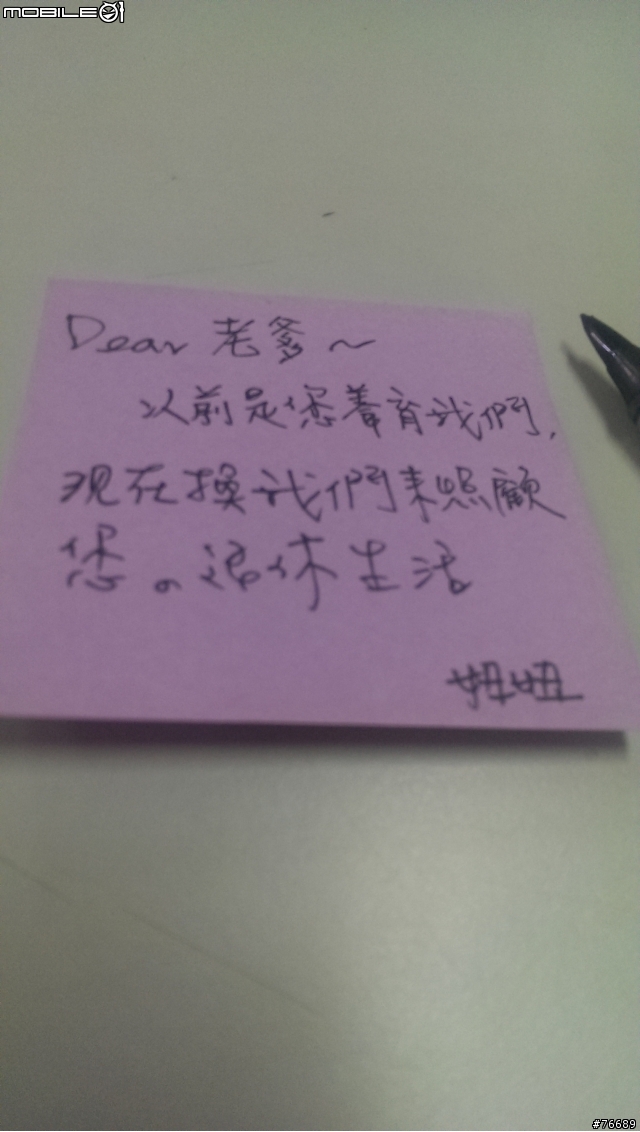 MOBILE01
Dear 老爹~
以前是您養育我們,
現在換我們來照顧
您。退休生活
妞妞
#76689